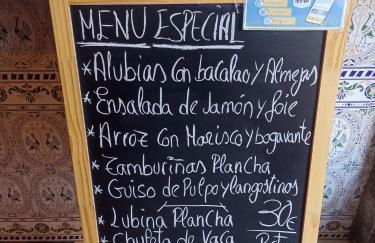 MENU ESPECIAL
*Alubias Con bacalao y Almejas
*Ensalada de Jamón y foie
*Arroz Con Marisco y bogavante
*Zamburiñas Plancha
*Guiso de Pulpo y langostinos
*Lubina Plancha 30€
*Chuleta de Vaca